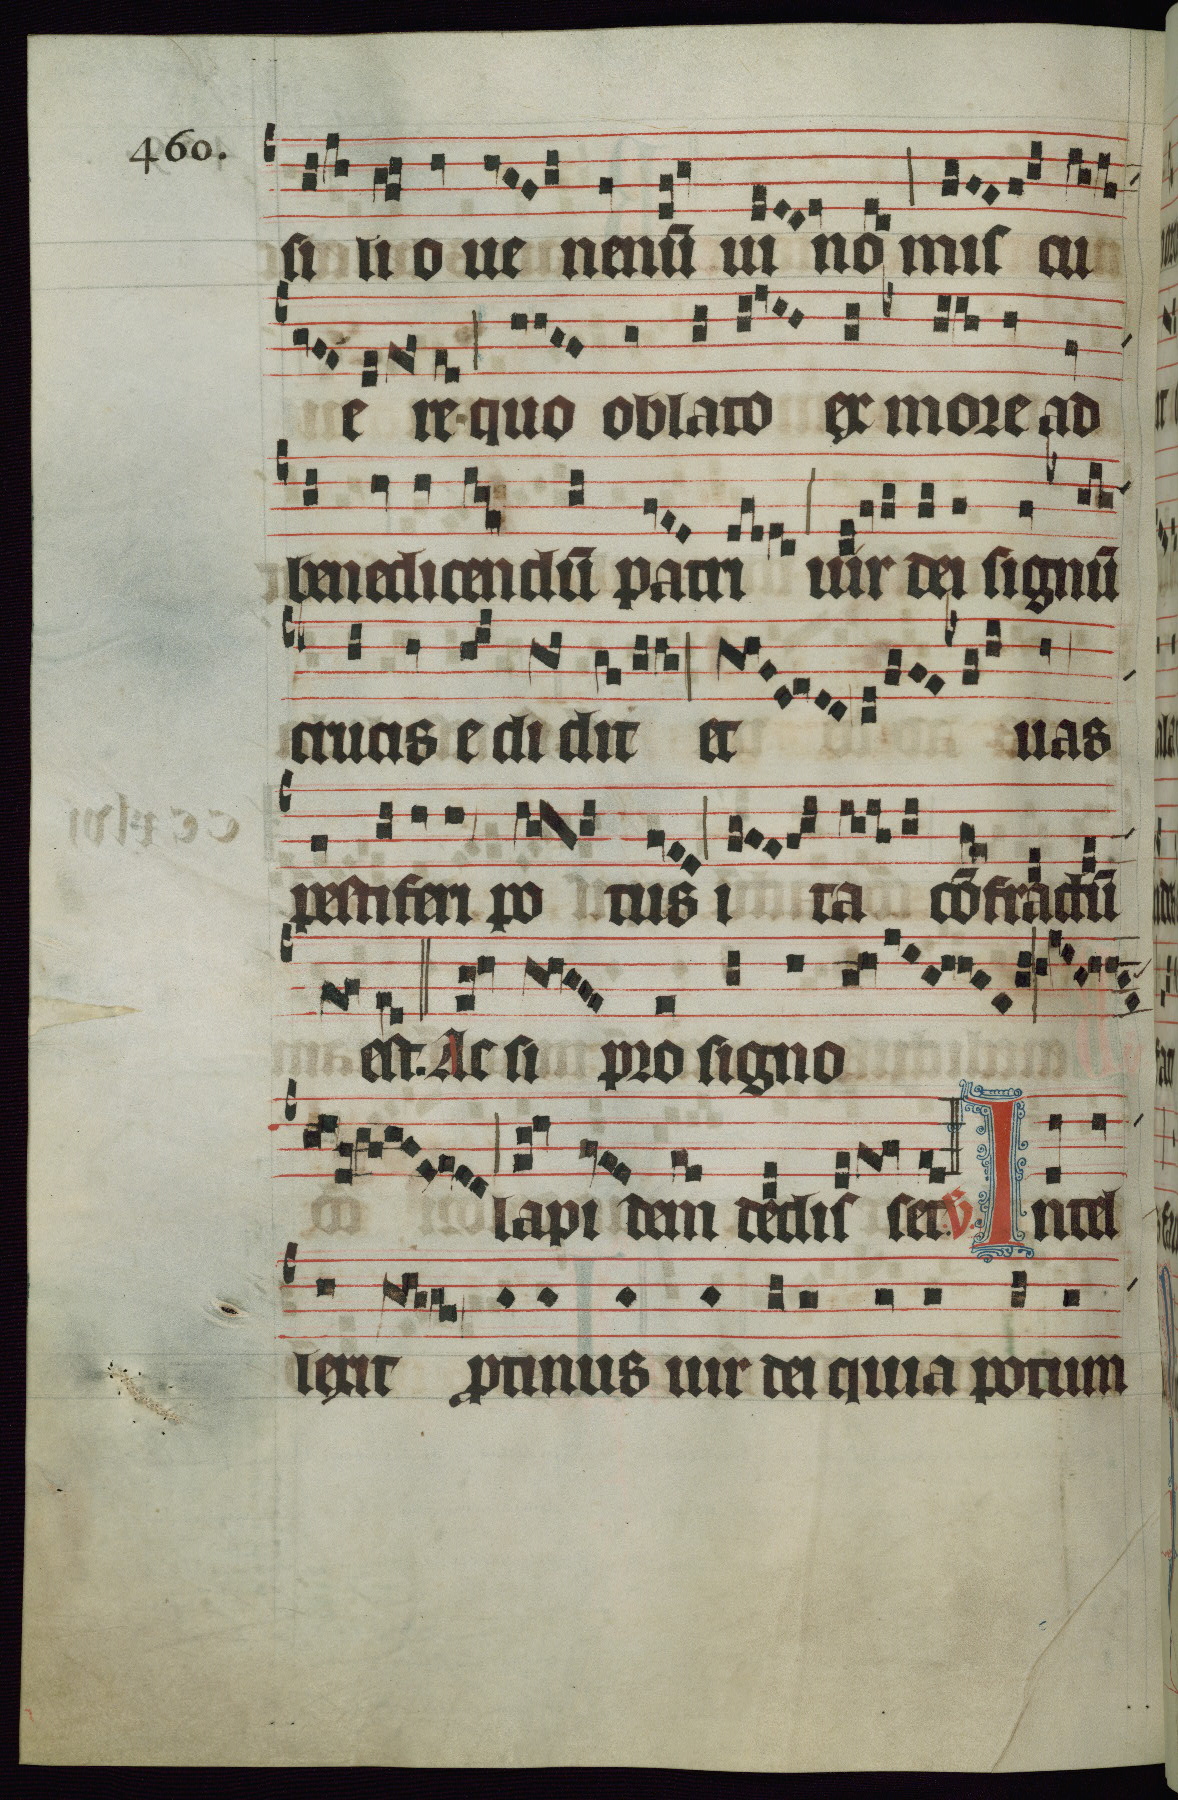 460.
si li o ue nenū ui no mis cu
e re·quo oblato ex more ad
benedicendū patri uir dei signū
crucis e di dit et uas
pestiferi po tus i ta cōfractū
est. Ac si pro signo
lapi dem dedis set. V. Intel
lexit ꝓtinus uir dei quia potum